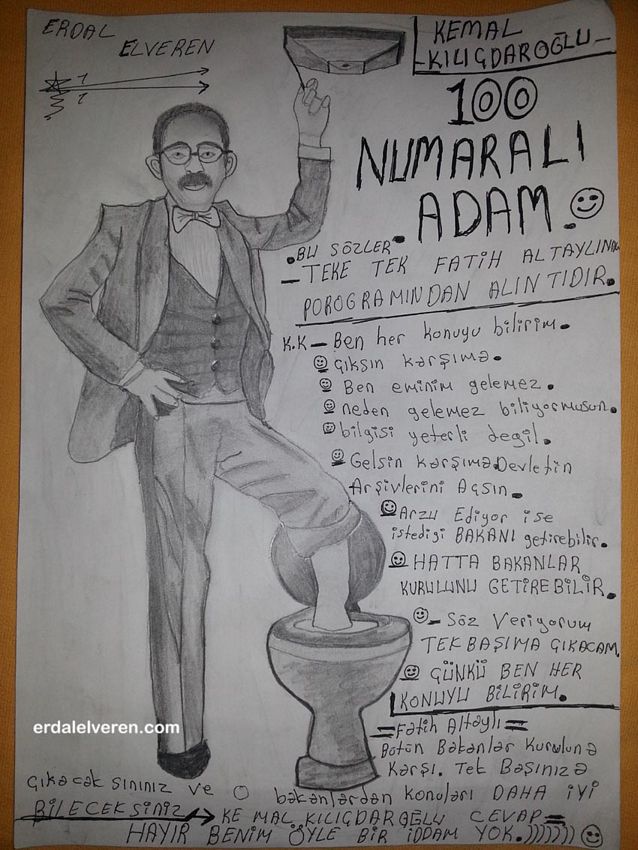 ERDAL
ELVEREN
KEMAL
KILIGDAROĞLU
100
NUMARALI
ADAM.
.BU SÖZLER.
TEKE TEK FATİH ALTAYLININ
POROGRAMINDAN ALINTIDIR.
K.K — Ben her konuyu bilirim.
Çıksın karşıma.
Ben eminim gelemez.
neden gelemez biliyormusun.
bilgisi yeterli degil.
Gelsin karşıma. Devletin
Arşivlerini Açsın.
Arzu Ediyor ise
istediği BAKANI getirebilir.
HATTA BAKANLAR
KURULUNU GETİREBİLİR.
— Söz Veriyorum
TEK BAŞIMA ÇIKACAM.
ÇÜNKÜ BEN HER
KONUYU BİLİRİM.
=Fatih Altaylı=
Bütün Bakanlar Kuruluna
Karşı. Tek Başınıza
Çıkacak sınınız ve O bakanlardan konuları DAHA iyi
BİLECEKSİNİZ → KEMAL KILIGDAROĞLU CEVAP=
HAYIR BENİM ÖYLE BİR İDDAM YOK.))))))
erdalelveren.com